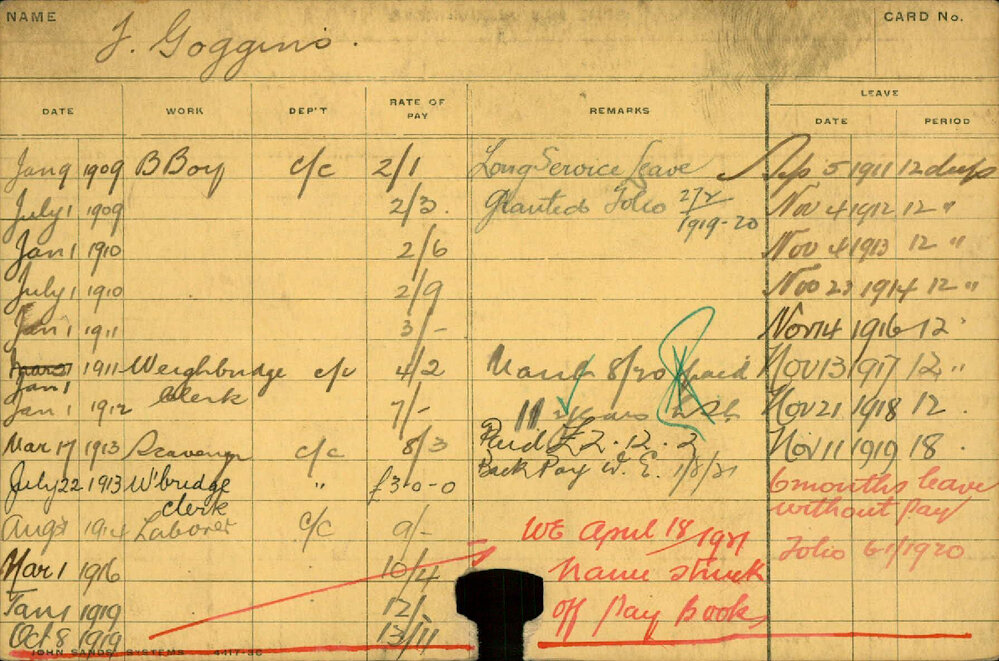 NAME
J. Goggins.
CARD No.
DATE WORK DEP'T RATE OF PAY REMARKS LEAVE
DATE PERIOD
Jan 9 1909 B Boy c/c 2/1 Long Service Leave Sep 5 1911 12 days
July 1 1909 2/3. Granted Folio 27 1919-20 Nov 4 1912 12 "
Jan 1 1910 2/6 Nov 4 1913 12 "
July 1 1910 2/9 Nov 23 1914 12 "
Jan 1 1911 3/- Nov 14 1916 12
1911 Weighbridge c/c 4/2 March 8/20 paid Nov 13 1917 12 "
Jan 1
Clerk
Jan 1 1912 7/- 11 years Nov 21 1918 12 .
Mar 17 1913 Scavenger c/c 8/3 Paid £2.12.2 Nov 11 1919 18 .
July 22 1913 W'bridge " £3-0-0 Back Pay W.E. 1/8/21 6 months leave
clerk
without Pay
Aug 1914 Laborer c/c 9/- WE April 18/1921 Folio 61/1920
Mar 1 1916 10/4 name struck
Jan 1 1919 12/- off Pay books
Oct 8 1919 13/11
JOHN SANDS SYSTEMS